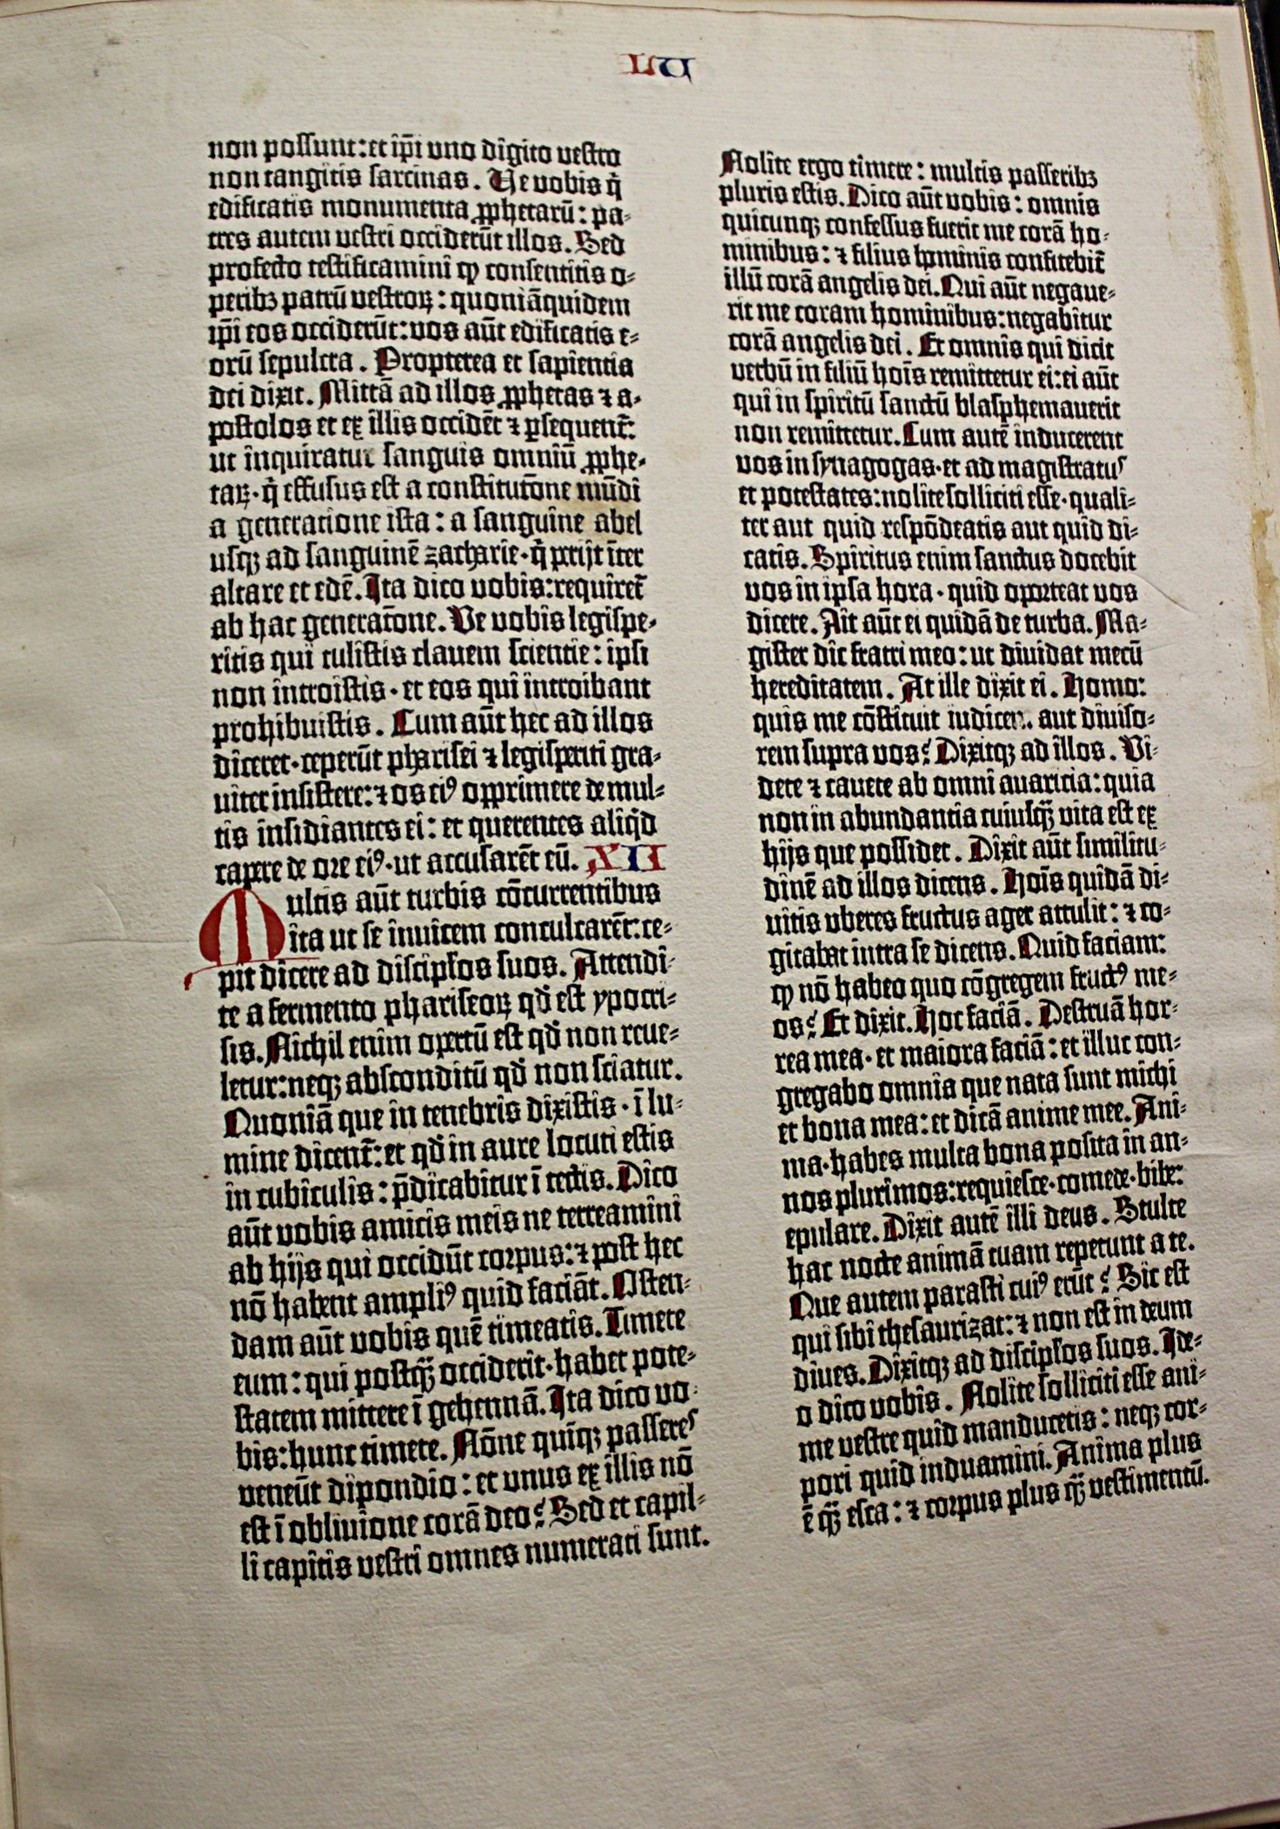 LU
non possunt: et ip̄i uno digito vestro
non tangitis sarcinas. Ve vobis q̄
edificatis monumenta ꝓphetarū: pa-
tres autem vestri occiderūt illos. Sed
profecto testificamini ꝙ consentitis o-
peribꝫ patrū vestroꝝ: quoniāquidem
ip̄i eos occiderūt: vos aūt edificatis e-
orū sepulcra. Propterea et sapientia
dei dixit. Mittā ad illos ꝓphetas ⁊ a-
postolos et ex illis occidēt ⁊ ꝑsequent̄:
ut inquiratur sanguis omniū ꝓphe-
taꝝ · q̄ effusus est a constitutōne mūdi
a generatione ista: a sanguine abel
usqꝫ ad sanguinē zacharie · q̄ perijt īter
altare et edē. Ita dico vobis: requiret̄
ab hac generatōne. Ve vobis legispe-
ritis qui tulistis clavem scientie: ipsi
non introistis · et eos qui introibant
prohibuistis. Cum aūt hec ad illos
diceret · ceperūt pharisei ⁊ legisperiti gra-
viter insistere: ⁊ os eiꝰ opprimere de mul-
tis insidiantes ei: et querentes aliq̄d
capere de ore eiꝰ · ut accusarēt eū. XII
Multis aūt turbis cōcurrentibus
ita ut se invicem conculcarēt: ce-
pit dicere ad discip̄los suos. Attendi-
te a fermento phariseoꝝ qd̄ est ypocri-
sis. Nichil enim opertū est qd̄ non reve-
letur: neqꝫ absconditū qd̄ non sciatur.
Quoniā que in tenebris dixistis · ī lu-
mine dicent̄: et qd̄ in aure locuti estis
in cubiculis: p̄dicabitur ī tectis. Dico
aūt vobis amicis meis ne terreamini
ab hijs qui occidūt corpus: ⁊ post hec
nō habent ampliꝰ quid faciāt. Osten-
dam aūt vobis quē timeatis. Timete
eum: qui postqꝫ̄ occiderit · habet pote-
statem mittere ī gehennā. Ita dico vo-
bis: hunc timete. Nōne quiqꝫ passeres
veneūt dipondio: et unus ex illis nō
est ī oblivione corā deo? Sed et capil-
li capitis vestri omnes numerati sunt.
Nolite ergo timere: multis passeribꝫ
pluris estis. Dico aūt vobis: omnis
quicunqꝫ confessus fuerit me corā ho-
minibus: ⁊ filius hominis confitebit̄
illū corā angelis dei. Qui aūt negave-
rit me coram hominibus: negabitur
corā angelis dei. Et omnis qui dicit
verbū in filiū hoīs remittetur ei: ei aūt
qui in spiritū sanctū blasphemaverit
non remittetur. Cum autē inducerent
vos in synagogas · et ad magistratus
et potestates: nolite solliciti esse · quali-
ter aut quid respōdeatis aut quid di-
catis. Spiritus enim sanctus docebit
vos in ipsa hora · quid oporteat vos
dicere. Ait aūt ei quidā de turba. Ma-
gister dic fratri meo: ut dividat mecū
hereditatem. At ille dixit ei. Homo:
quis me cōstituit iudicem aut diviso-
rem supra vos? Dixitqꝫ ad illos. Vi-
dete ⁊ cavete ab omni avaricia: quia
non in abundantia cuiusqꝫ̄ vita est ex
hijs que possidet. Dixit aūt similitu-
dinē ad illos dicens. Hoīs quidā di-
vitis uberes fructus ager attulit: ⁊ co-
gitabat intra se dicens. Quid faciam:
ꝙ nō habeo quo cōgregem fructꝰ me-
os? Et dixit. Hoc faciā. Destruā hor-
rea mea · et maiora faciā: et illuc con-
gregabo omnia que nata sunt michi
et bona mea: et dicā anime mee. Ani-
ma · habes multa bona posita in an-
nos plurimos: requiesce · comede · bibe:
epulare. Dixit autē illi deus. Stulte
hac nocte animā tuam repetunt a te.
Que autem parasti cuiꝰ erūt? Sic est
qui sibi thesaurizat: ⁊ non est in deum
dives. Dixitqꝫ ad discip̄los suos. Ide-
o dico vobis. Nolite solliciti esse ani-
me vestre quid manducetis: neqꝫ cor-
pori quid induamini. Anima plus
ē qꝫ̄ esca: ⁊ corpus plus qꝫ̄ vestimentū.